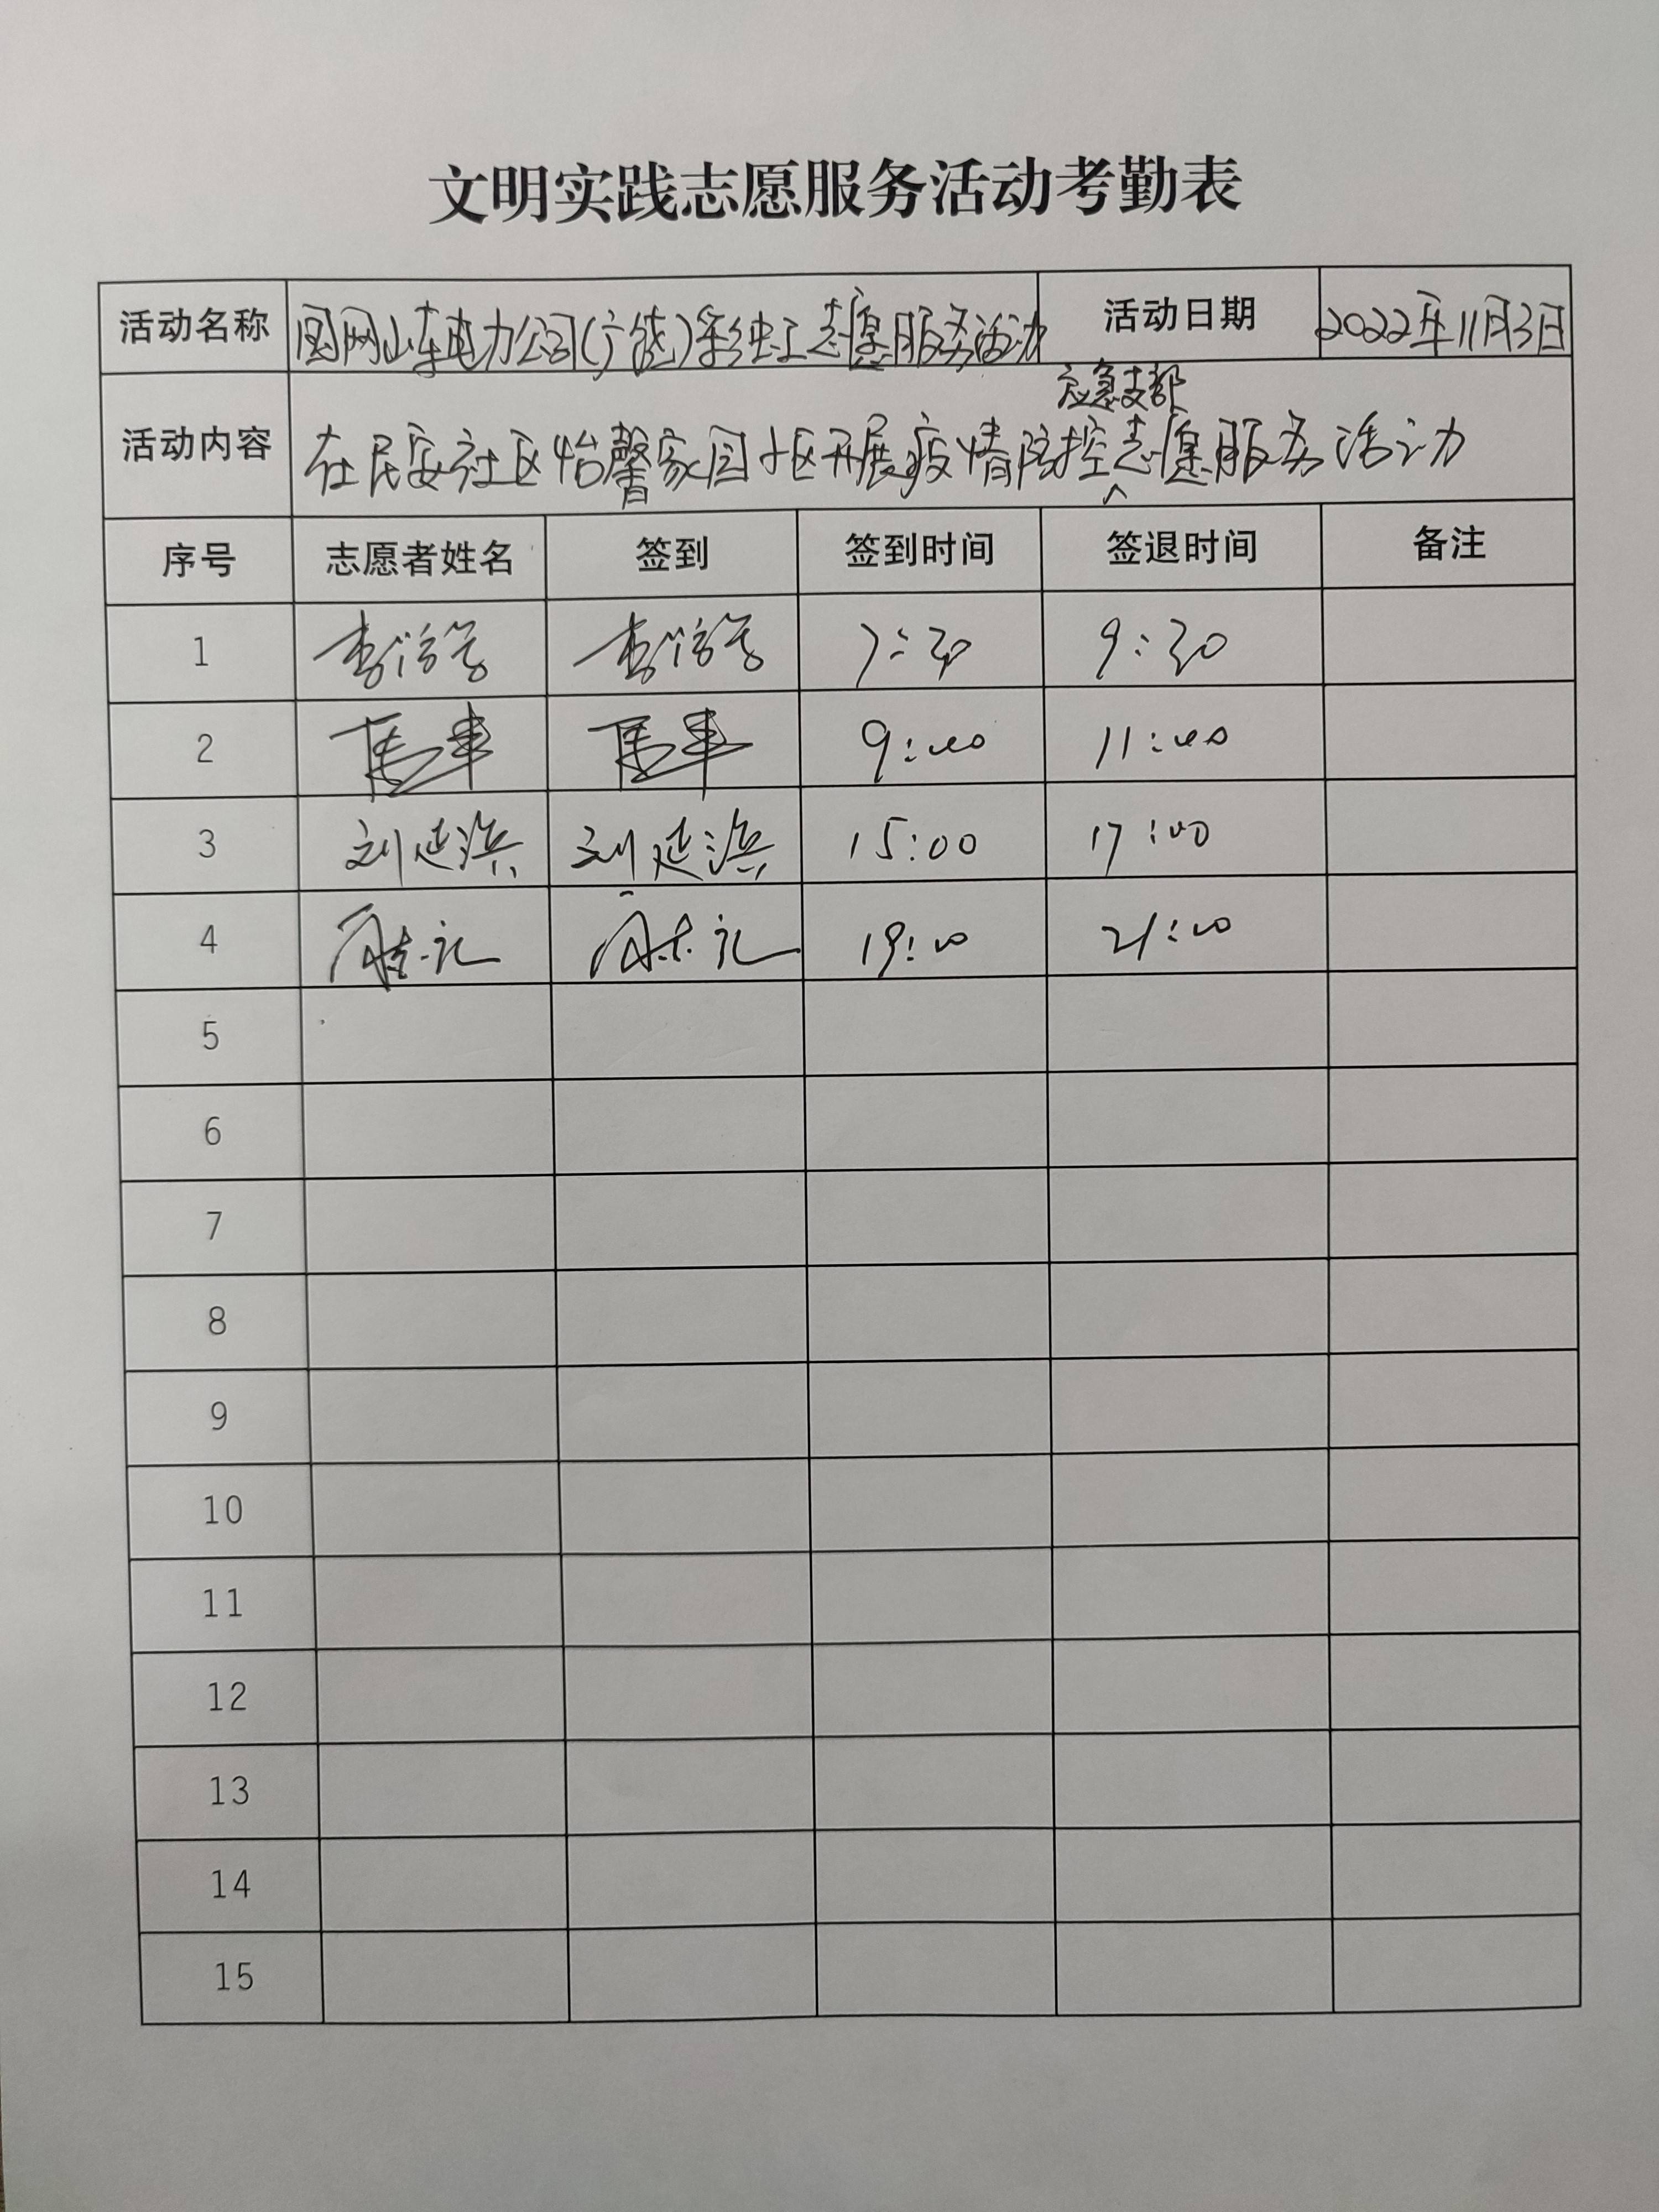 文明实践志愿服务活动考勤表
活动名称 国网山东电力公司(广饶)彩虹志愿服务活动 活动日期 2022年11月3日
应急支部
活动内容 在民安社区怡馨家园小区开展疫情防控志愿服务活动
序号 志愿者姓名 签到 签到时间 签退时间 备注
1 7:30 9:30
2 9:00 11:00
3 刘延滨 刘延滨 15:00 17:00
4 19:00 21:00
5
6
7
8
9
10
11
12
13
14
15